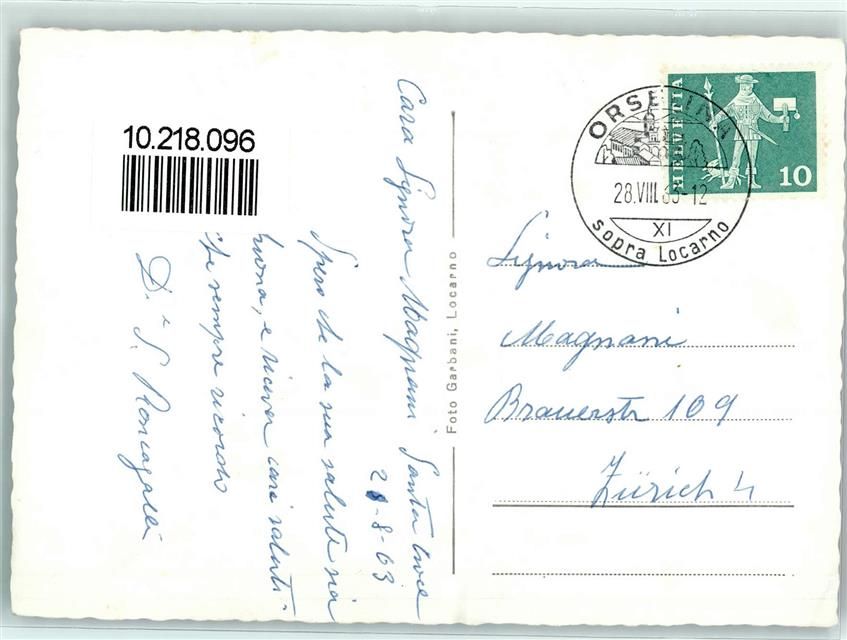 10.218.096
Cara Signora Magnani Santa
28-8-63
Spero che la sua salute sia
buona, e riceva cari saluti.
sempre ricordo
D. S. Roncagalli
Foto Garbani, Locarno
HELVETIA
10
ORSELINA
28.VIII.63-12
XI
sopra Locarno
Signora
Magnani
Brauerstr 109
Zürich 4